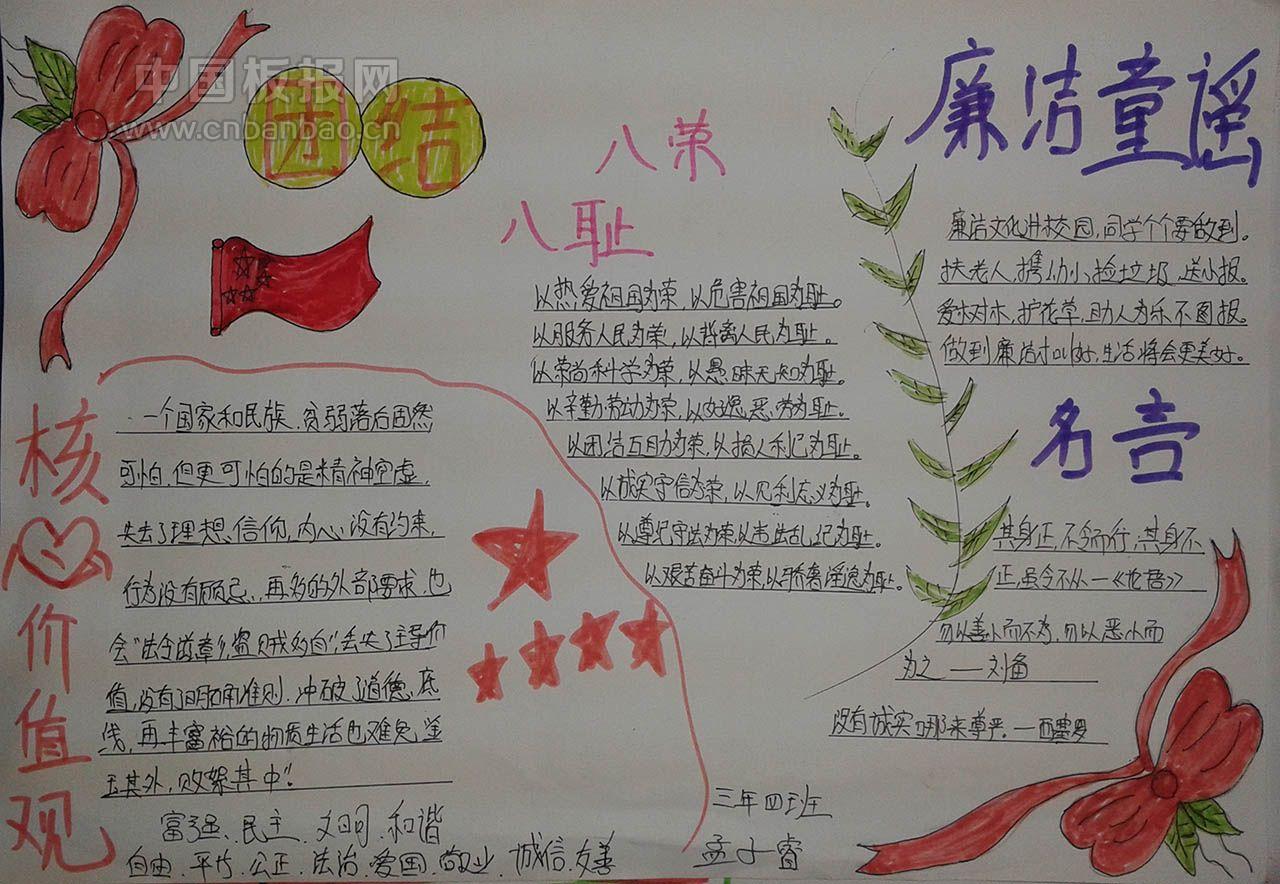 中国板报网
www.cnbanbao.cn
团结
八荣
八耻
以热爱祖国为荣,以危害祖国为耻。
以服务人民为荣,以背离人民为耻。
以荣尚科学为荣,以愚昧无知为耻。
以辛勤劳动为荣,以好逸恶劳为耻。
以团结互助为荣,以损人利己为耻。
以诚实守信为荣,以见利忘义为耻。
以遵纪守法为荣以违法乱纪为耻。
以艰苦奋斗为荣,以骄奢淫逸为耻。
廉洁童谣
廉洁文化进校园,同学个个要做到。
扶老人,携幼小,捡垃圾,送小报。
爱树木,护花草,助人为乐不图报。
做到廉洁才叫好,生活将会更美好。
名言
其身正,不令而行,其身不
正,虽令不从—《论语》
勿以善小而不为,勿以恶小而
为之 ——刘备
没有诚实哪来尊严。—西塞罗
核心价值观
一个国家和民族,贫弱落后固然
可怕,但更可怕的是精神空虚,
失去了理想、信仰,内心没有约束,
行为没有顾忌,再多的外部要求,也
会"法令滋章,盗贼多有",丢失了主导价
值,没有了明确准则,冲破了道德、底
线,再丰富裕的物质生活也难免"金
玉其外,败絮其中"!
富强、民主、文明、和谐
自由、平等、公正、法治、爱国、敬业、诚信、友善
三年四班
孟子睿